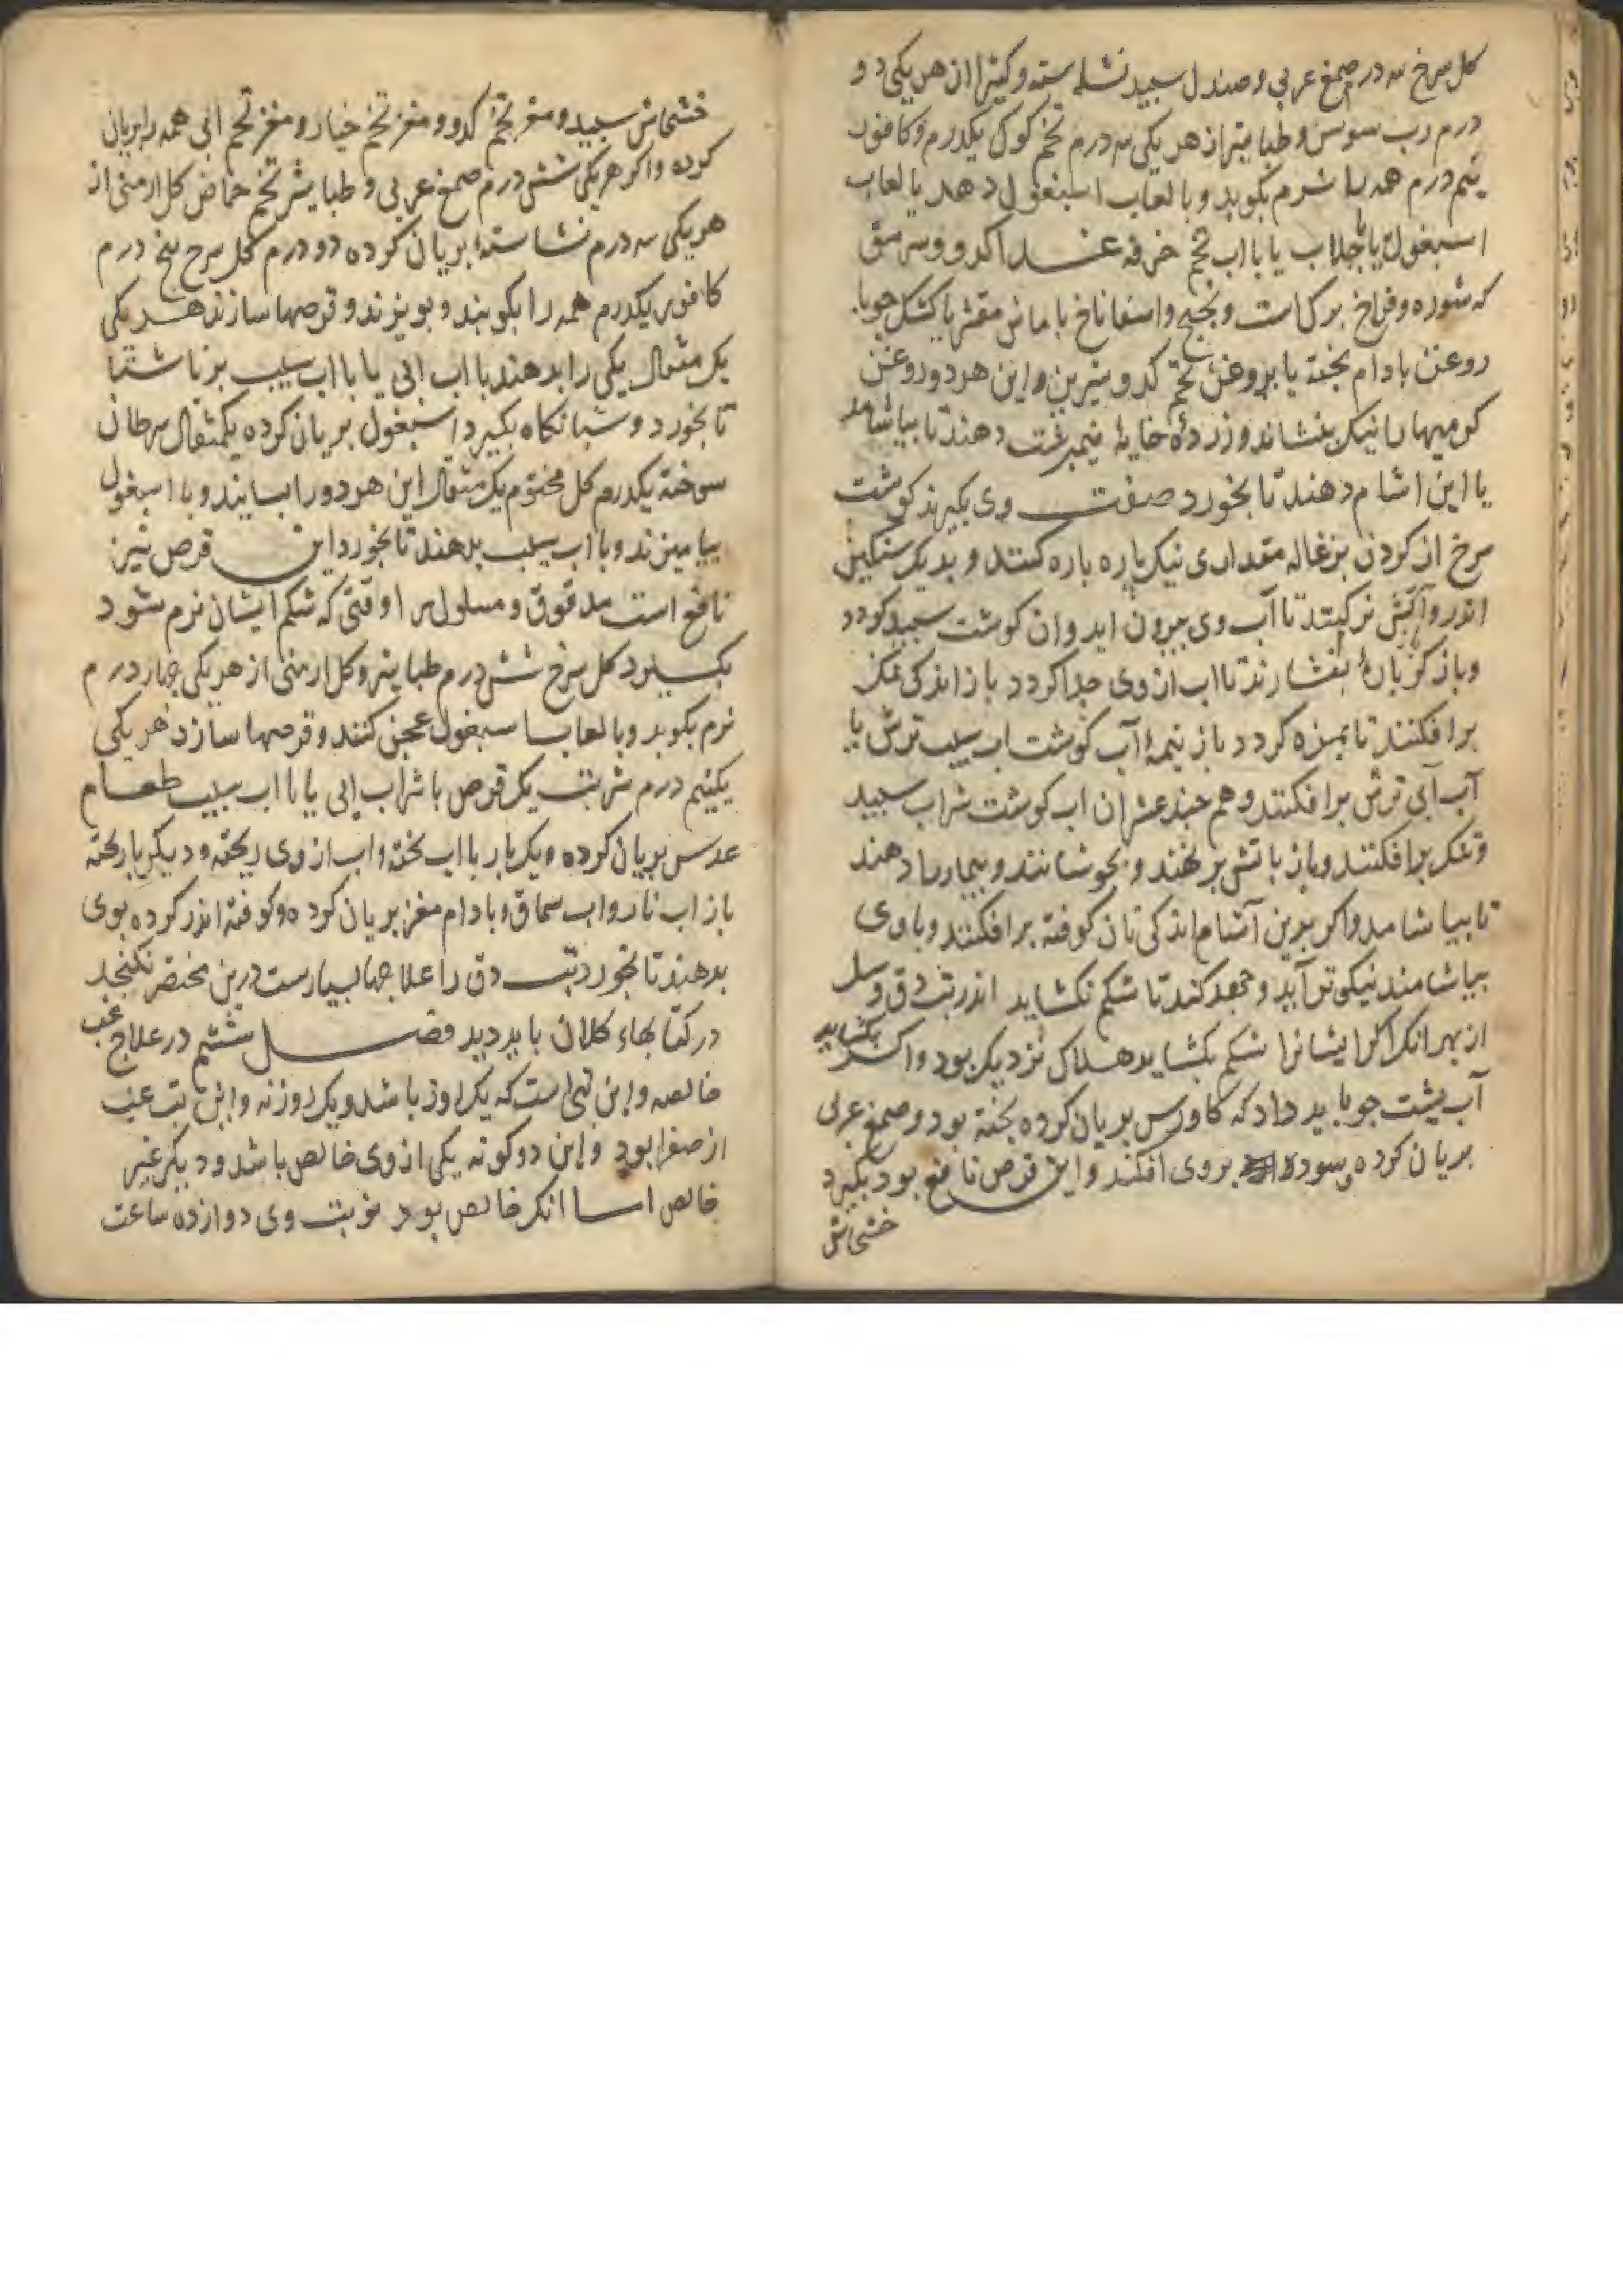 کل سرخ سه درم صمغ عربی و صندل سبید نشاسته و کتیرا از هر یکی دو
درم رب سوس و طباشیر از هر یکی سه درم تخم کوک یکدرم و کافور
نیم درم همه را نرم بکوبد و با لعاب اسبغول دهد یا لعاب
اسبغول یا جلاب یا با اب تخم خرفه غدا کدو و سرمق
که شوره و فراخ برک است و اسفاناخ با ماش مقشر یا کشک جو با
روغن بادام بخته یا بروغن تخم کدو شیرین و این هر دو روغن
کرمیها را نیک بنشاند و زرده خایه نیمبرشت دهند تا بیاشامد
یا این اشام دهند تا بخورد صفت وی بکیرند کوشت
سرخ از کردن بزغاله مقداری نیک باره باره کنند و بدیک سنکین
اندر و آتش نرم کنند تا آب وی بیرون اید و ان کوشت سبید کردد
و باز بفشارند تا اب از وی جدا کردد باز اندکی نمک
برافکنند تا بمزه کردد باز نیمه آب کوشت اب سیب ترش یا
آب آبی ترش برافکنند و هم جند عشر ان اب کوشت شراب سبید
و نمک برافکنند و باز باتش برنهند و بجوشانند و بیمار را دهند
تا بیاشامد و اکر برین آشام اندکی نان کوفته برافکنند و با وی
بیاشامند نیکوتر آید و جهد کند تا شکم نکشاید اندر تب دق و سل
از بهر انک اکر ایشانرا شکم بکشاید هلاک نزدیک بود و اکر بکشاید
آب بشت جو باید داد که کاورس بریان کرده بخته بود و صمغ عربی
بریان کرده و سوده بروی افکند و این قرص نافع بود بکیرد
خشخاش
خشخاش سبید و مغز تخم کدو و مغز تخم خیار و مغز تخم ابی همه را بریان
کرده از هر یکی شش درم صمغ عربی و طباشیر تخم حماض کل ارمنی از
هر یکی سه درم نشاسته بریان کرده دو درم کل سرخ بنج درم
کافور یکدرم همه را بکوبند و ببیزند و قرصها سازند هر یکی
یک مثقال یکی را بدهند با اب ابی یا با اب سیب بر ناشتا
تا بخورد و شبانکاه بکیرد اسبغول بریان کرده یکمثقال سرطان
سوخته یکدرم کل مختوم یک مثقال این هر دو را بسایند و با اسبغول
بیامیزند و با اب سیب بدهند تا بخورد این قرص نیز
نافع است مدقوق و مسلول را وقتی که شکم ایشان نرم شود
بکیرد کل سرخ شش درم طباشیر و کل ارمنی از هر یکی جهار درم
نرم بکوبد و با لعاب اسبغول عجین کنند و قرصها سازد هر یکی
یکنیم درم شربت یک قرص با شراب ابی یا با اب سیب طعام
عدس بریان کرده و یک بار با اب بخته و اب از وی ریخته و دیکر بار بخته
باز اب نار و اب سماق و بادام مغز بریان کرده و کوفته اندر کرده بوی
بدهند تا بخورد تب دق را علاجها بسیارست درین مختصر نکنجد
در کتابهاء کلان باید دید فصل ششم در علاج غب
خالصه و این تبی است که یک روز باشد و یک روز نه و این تب غب
از صفرا بود و این دو کونه یکی از وی خالص باشد و دیکر غیر
خالص اما انک خالص بود نوبت وی دوازده ساعت